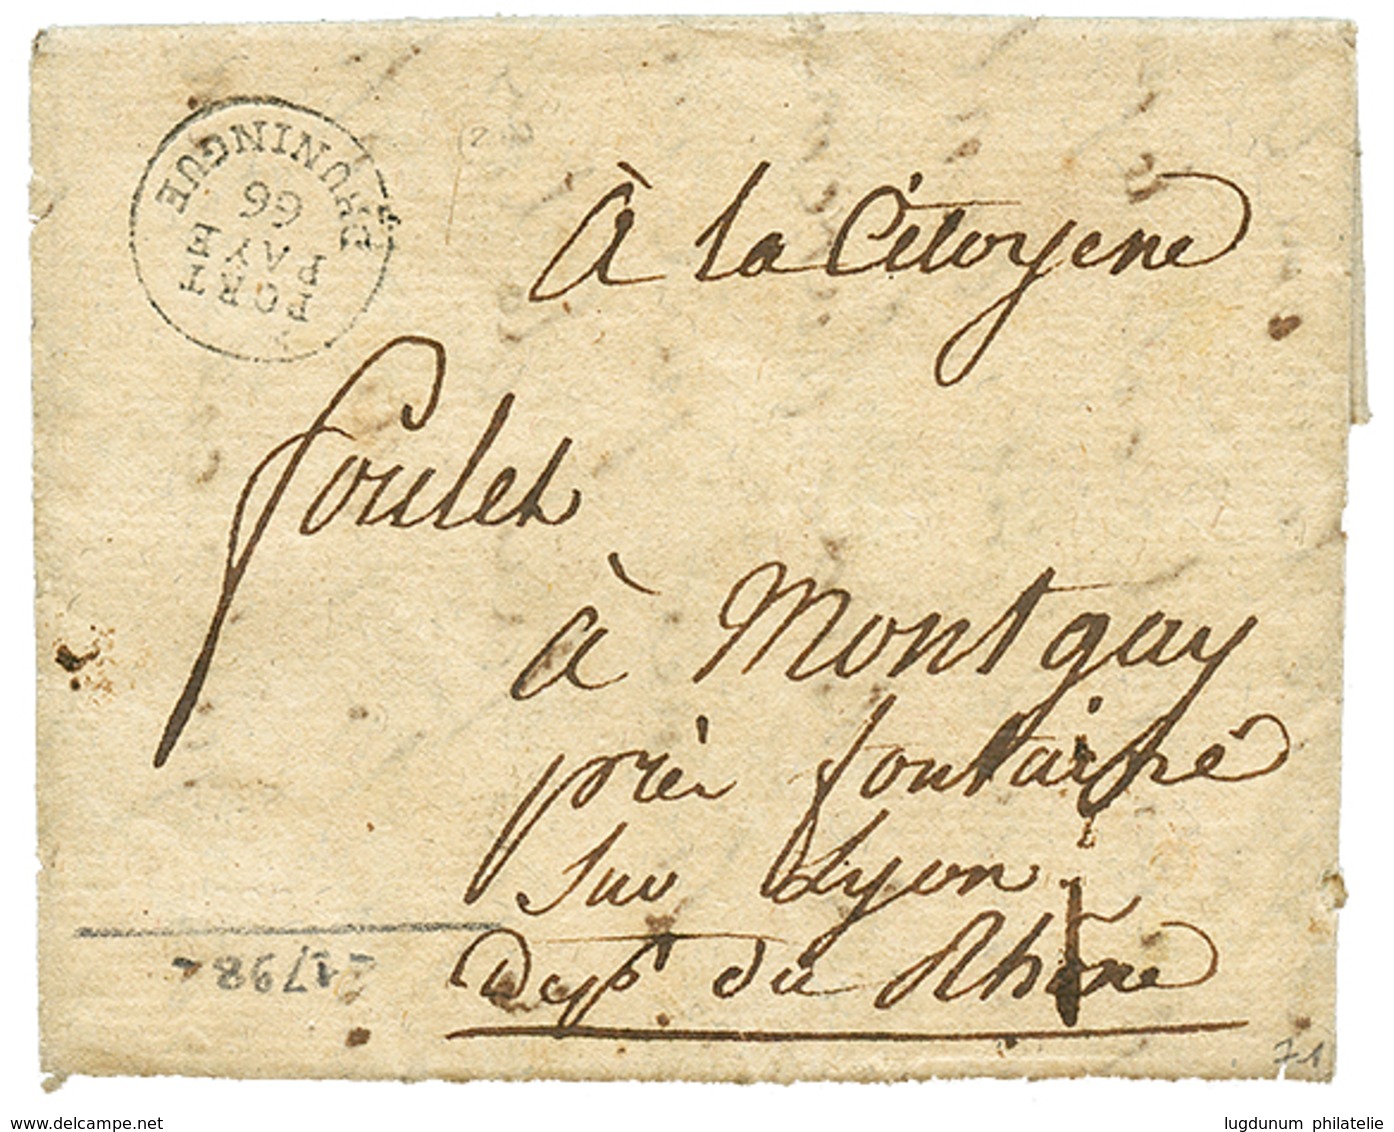 HUNINGUE
66
PAYE
PORT
À la Citoyene
Foulet
à Montgay
près fontaine
Sur Lyon
Dept du Rhône
1798
71
www.delcampe.net
lugdunum philatelie